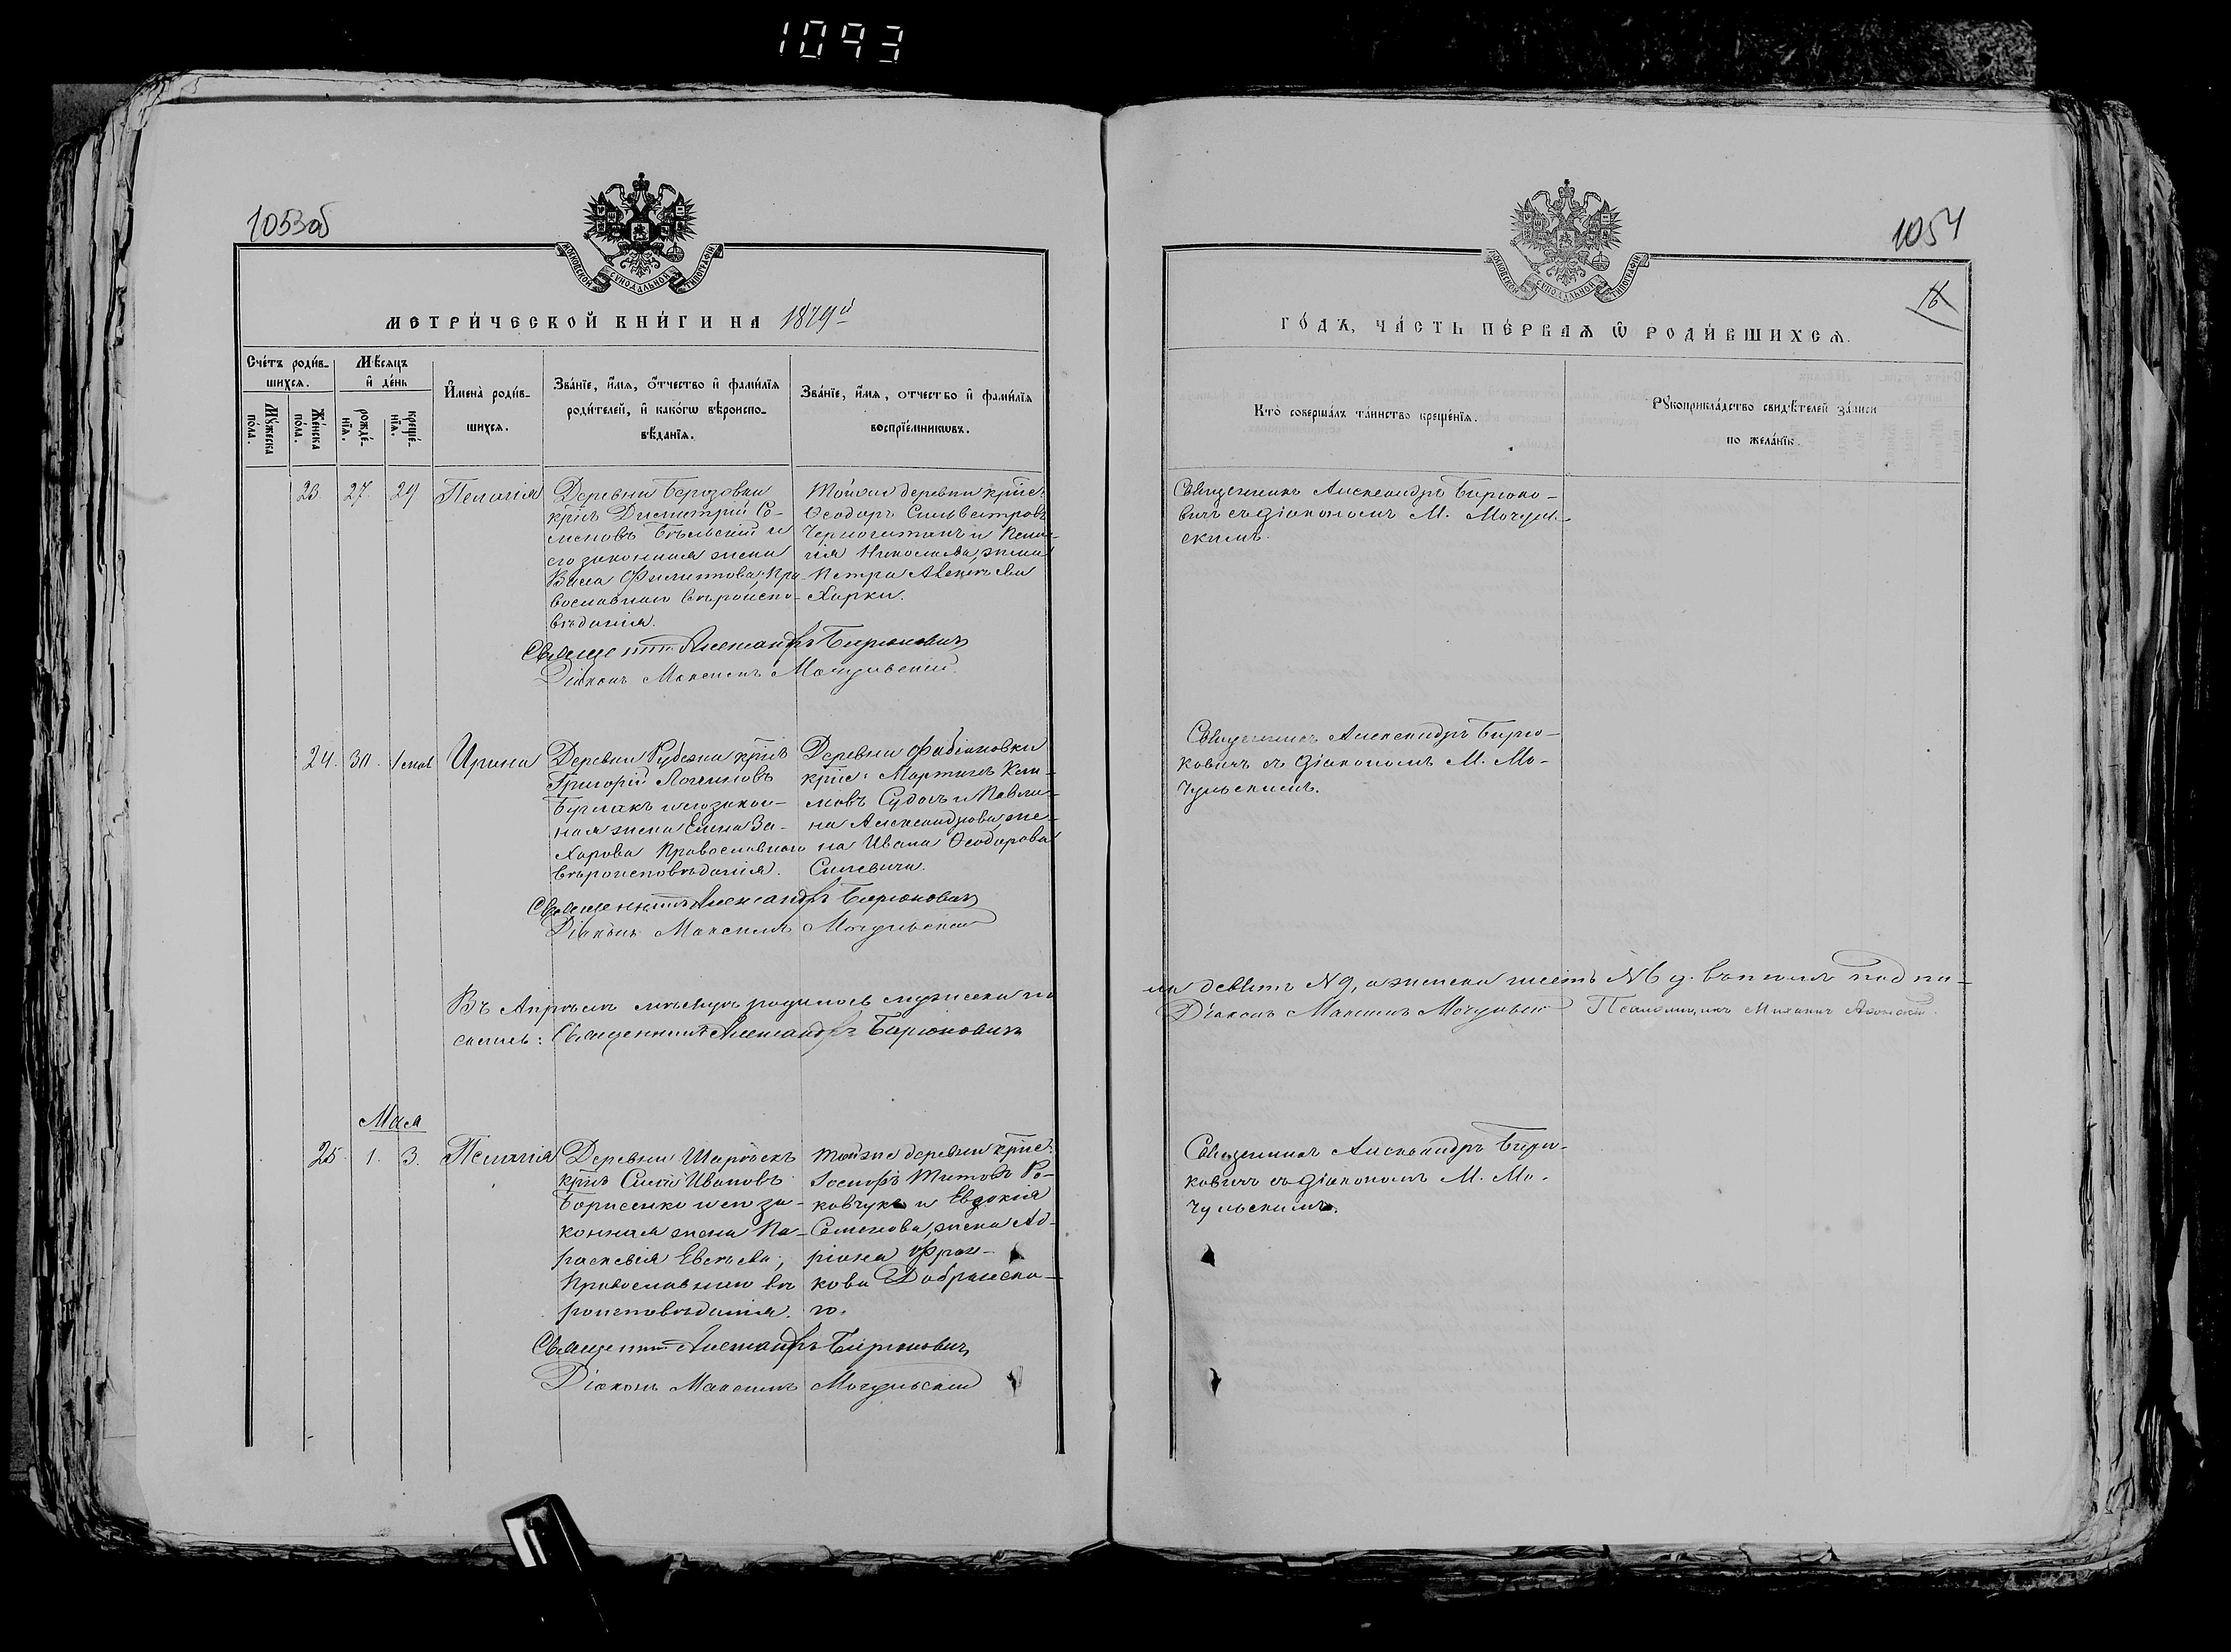 1093
1053об
1054
16
МОСКОВСКОЙ СУНОДАЛЬНОЙ ТИПОГРАФІИ
МОСКОВСКОЙ СУНОДАЛЬНОЙ ТИПОГРАФІИ
МЕТРИ́ЧЕСКОЙ КНИ́ГИ НА 1879й
ГО́ДЪ, ЧА́СТЬ ПЕ́РВАѦ Ѽ РОДИ́ВШИХСѦ.
Сче́тъ роди́в-
шихся.
Мꙋжеска по́ла.
Же́нска по́ла.
Мѣ́сяцъ
и҆ де́нь
рожде́-
нїя.
креще́-
нїя.
И҆мена̀ роди́в-
шихся.
Зва́нїе, и҆́мя, ѻ҆́тчество и҆ фами́лїя
роди́телей, и҆ како́гѡ вѣроиспо-
вѣ́данїя.
Зва́нїе, и҆́мя, отчество и҆ фами́лїя
воспрїе́мникѡвъ.
Кто̀ соверша́лъ та́инство креще́нїя.
Рꙋкоприкла́дство свидѣ́телей за́писи
по жела́нїю.
23. 27. 29 Пелагія
Деревни Березовки
крiе Димитрій Се-
меновъ Бѣльскій и
его законная жена
Васса Филиппова; Пра-
вославнаго вѣроиспо-
вѣданія.
Тойже деревни крiе:
Ѳеодоръ Сильвестровъ
и Пела-
гія Николаева, жена
Петра Алексѣева
Харки.
Священникъ Александръ Бирюко-
вичъ съ діакономъ М. Мочуль-
скимъ.
Священникъ Александръ Бирюковичъ
Діаконъ Максимъ Мочульскій
24. 30. 1 мая Ирина
Деревни Рубежа крiе
Григорій Логиновъ
Бурлакъ и его закон-
ная жена Елена За-
харова Православнаго
вѣроисповѣданія.
Деревни Фабіановки
крiе: Мартинъ Кли-
мовъ Судолъ и Павли-
на Александрова, же-
на Ивана Ѳеодорова
Синевича.
Священникъ Александръ Бирю-
ковичъ съ діакономъ М. Мо-
чульскимъ.
Священникъ Александръ Бирюковичъ
Діаконъ Максимъ Мочульскій
Въ Апрѣлѣ мѣсяцѣ родилось мужеска по
ла девять N 9, а женска шесть N 6 д. въ томъ подпи-
сались: Священникъ Александръ Бирюковичъ
Діаконъ Максимъ Мочульскій Псаломщикъ Михаилъ
Мая
25. 1. 3. Пелагія
Деревни
крiе Иванов
Борисенко и его за-
конная жена Па-
раскевія Евсѣева;
Православнаго вѣ
роисповѣданія.
Тойже деревни крiе:
Іосифъ Титовъ Ро-
ковчукъ и Евдокія
Семенова, жена Ад-
ріана Фран-
кова Добранска-
го.
Священникъ Александръ Бирю-
ковичъ съ діакономъ М. Мо-
чульскимъ.
Священникъ Александръ Бирюковичъ
Діаконъ Максимъ Мочульскій